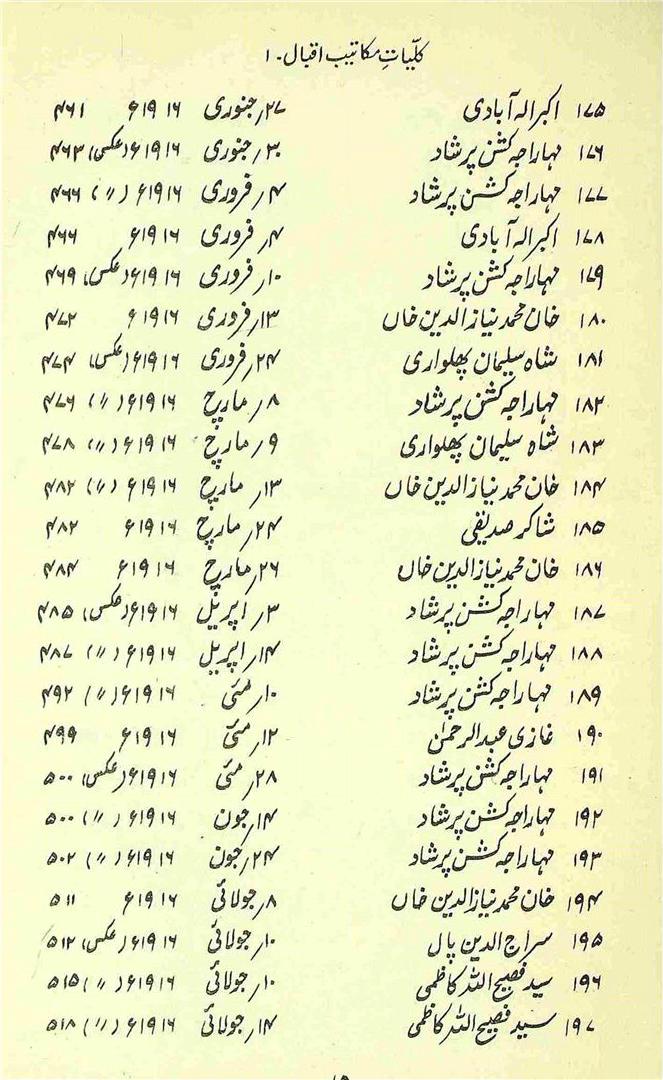 کلّیاتِ مکاتیب اقبال۔ ۱
۱۷۵ اکبر الہ آبادی ۲۷؍ جنوری ۱۹۱۶ء ۴۶۱
۱۷۶ مہاراجہ کشن پرشاد ۳۰؍ جنوری ۱۹۱۶ء (عکس) ۴۶۳
۱۷۷ مہاراجہ کشن پرشاد ۴؍ فروری ۱۹۱۶ء (〃) ۴۶۶
۱۷۸ اکبر الہ آبادی ۴؍ فروری ۱۹۱۶ء ۴۶۶
۱۷۹ مہاراجہ کشن پرشاد ۱۰؍ فروری ۱۹۱۶ء (عکس) ۴۶۹
۱۸۰ خان محمد نیاز الدین خاں ۱۳؍ فروری ۱۹۱۶ء ۴۷۲
۱۸۱ شاہ سلیمان پھلواری ۲۴؍ فروری ۱۹۱۶ء (عکس) ۴۷۴
۱۸۲ مہاراجہ کشن پرشاد ۸؍ مارچ ۱۹۱۶ء (〃) ۴۷۶
۱۸۳ شاہ سلیمان پھلواری ۹؍ مارچ ۱۹۱۶ء (〃) ۴۷۸
۱۸۴ خان محمد نیاز الدین خاں ۱۳؍ مارچ ۱۹۱۶ء (〃) ۴۸۲
۱۸۵ شاکر صدیقی ۲۴؍ مارچ ۱۹۱۶ء ۴۸۲
۱۸۶ خان محمد نیاز الدین خاں ۲۶؍ مارچ ۱۹۱۶ء ۴۸۴
۱۸۷ مہاراجہ کشن پرشاد ۳؍ اپریل ۱۹۱۶ء (عکس) ۴۸۵
۱۸۸ مہاراجہ کشن پرشاد ۱۴؍ اپریل ۱۹۱۶ء (〃) ۴۸۷
۱۸۹ مہاراجہ کشن پرشاد ۱۰؍ مئی ۱۹۱۶ء (〃) ۴۹۲
۱۹۰ غازی عبدالرحمٰن ۱۲؍ مئی ۱۹۱۶ء ۴۹۹
۱۹۱ مہاراجہ کشن پرشاد ۲۸؍ مئی ۱۹۱۶ء (عکس) ۵۰۰
۱۹۲ مہاراجہ کشن پرشاد ۱۴؍ جون ۱۹۱۶ء (〃) ۵۰۰
۱۹۳ مہاراجہ کشن پرشاد ۲۴؍ جون ۱۹۱۶ء (〃) ۵۰۲
۱۹۴ خان محمد نیاز الدین خاں ۸؍ جولائی ۱۹۱۶ء ۵۱۱
۱۹۵ سراج الدین پال ۱۰؍ جولائی ۱۹۱۶ء (عکس) ۵۱۲
۱۹۶ سید فصیح اللہ کاظمی ۱۰؍ جولائی ۱۹۱۶ء (〃) ۵۱۵
۱۹۷ سید فصیح اللہ کاظمی ۱۴؍ جولائی ۱۹۱۶ء (〃) ۵۱۸